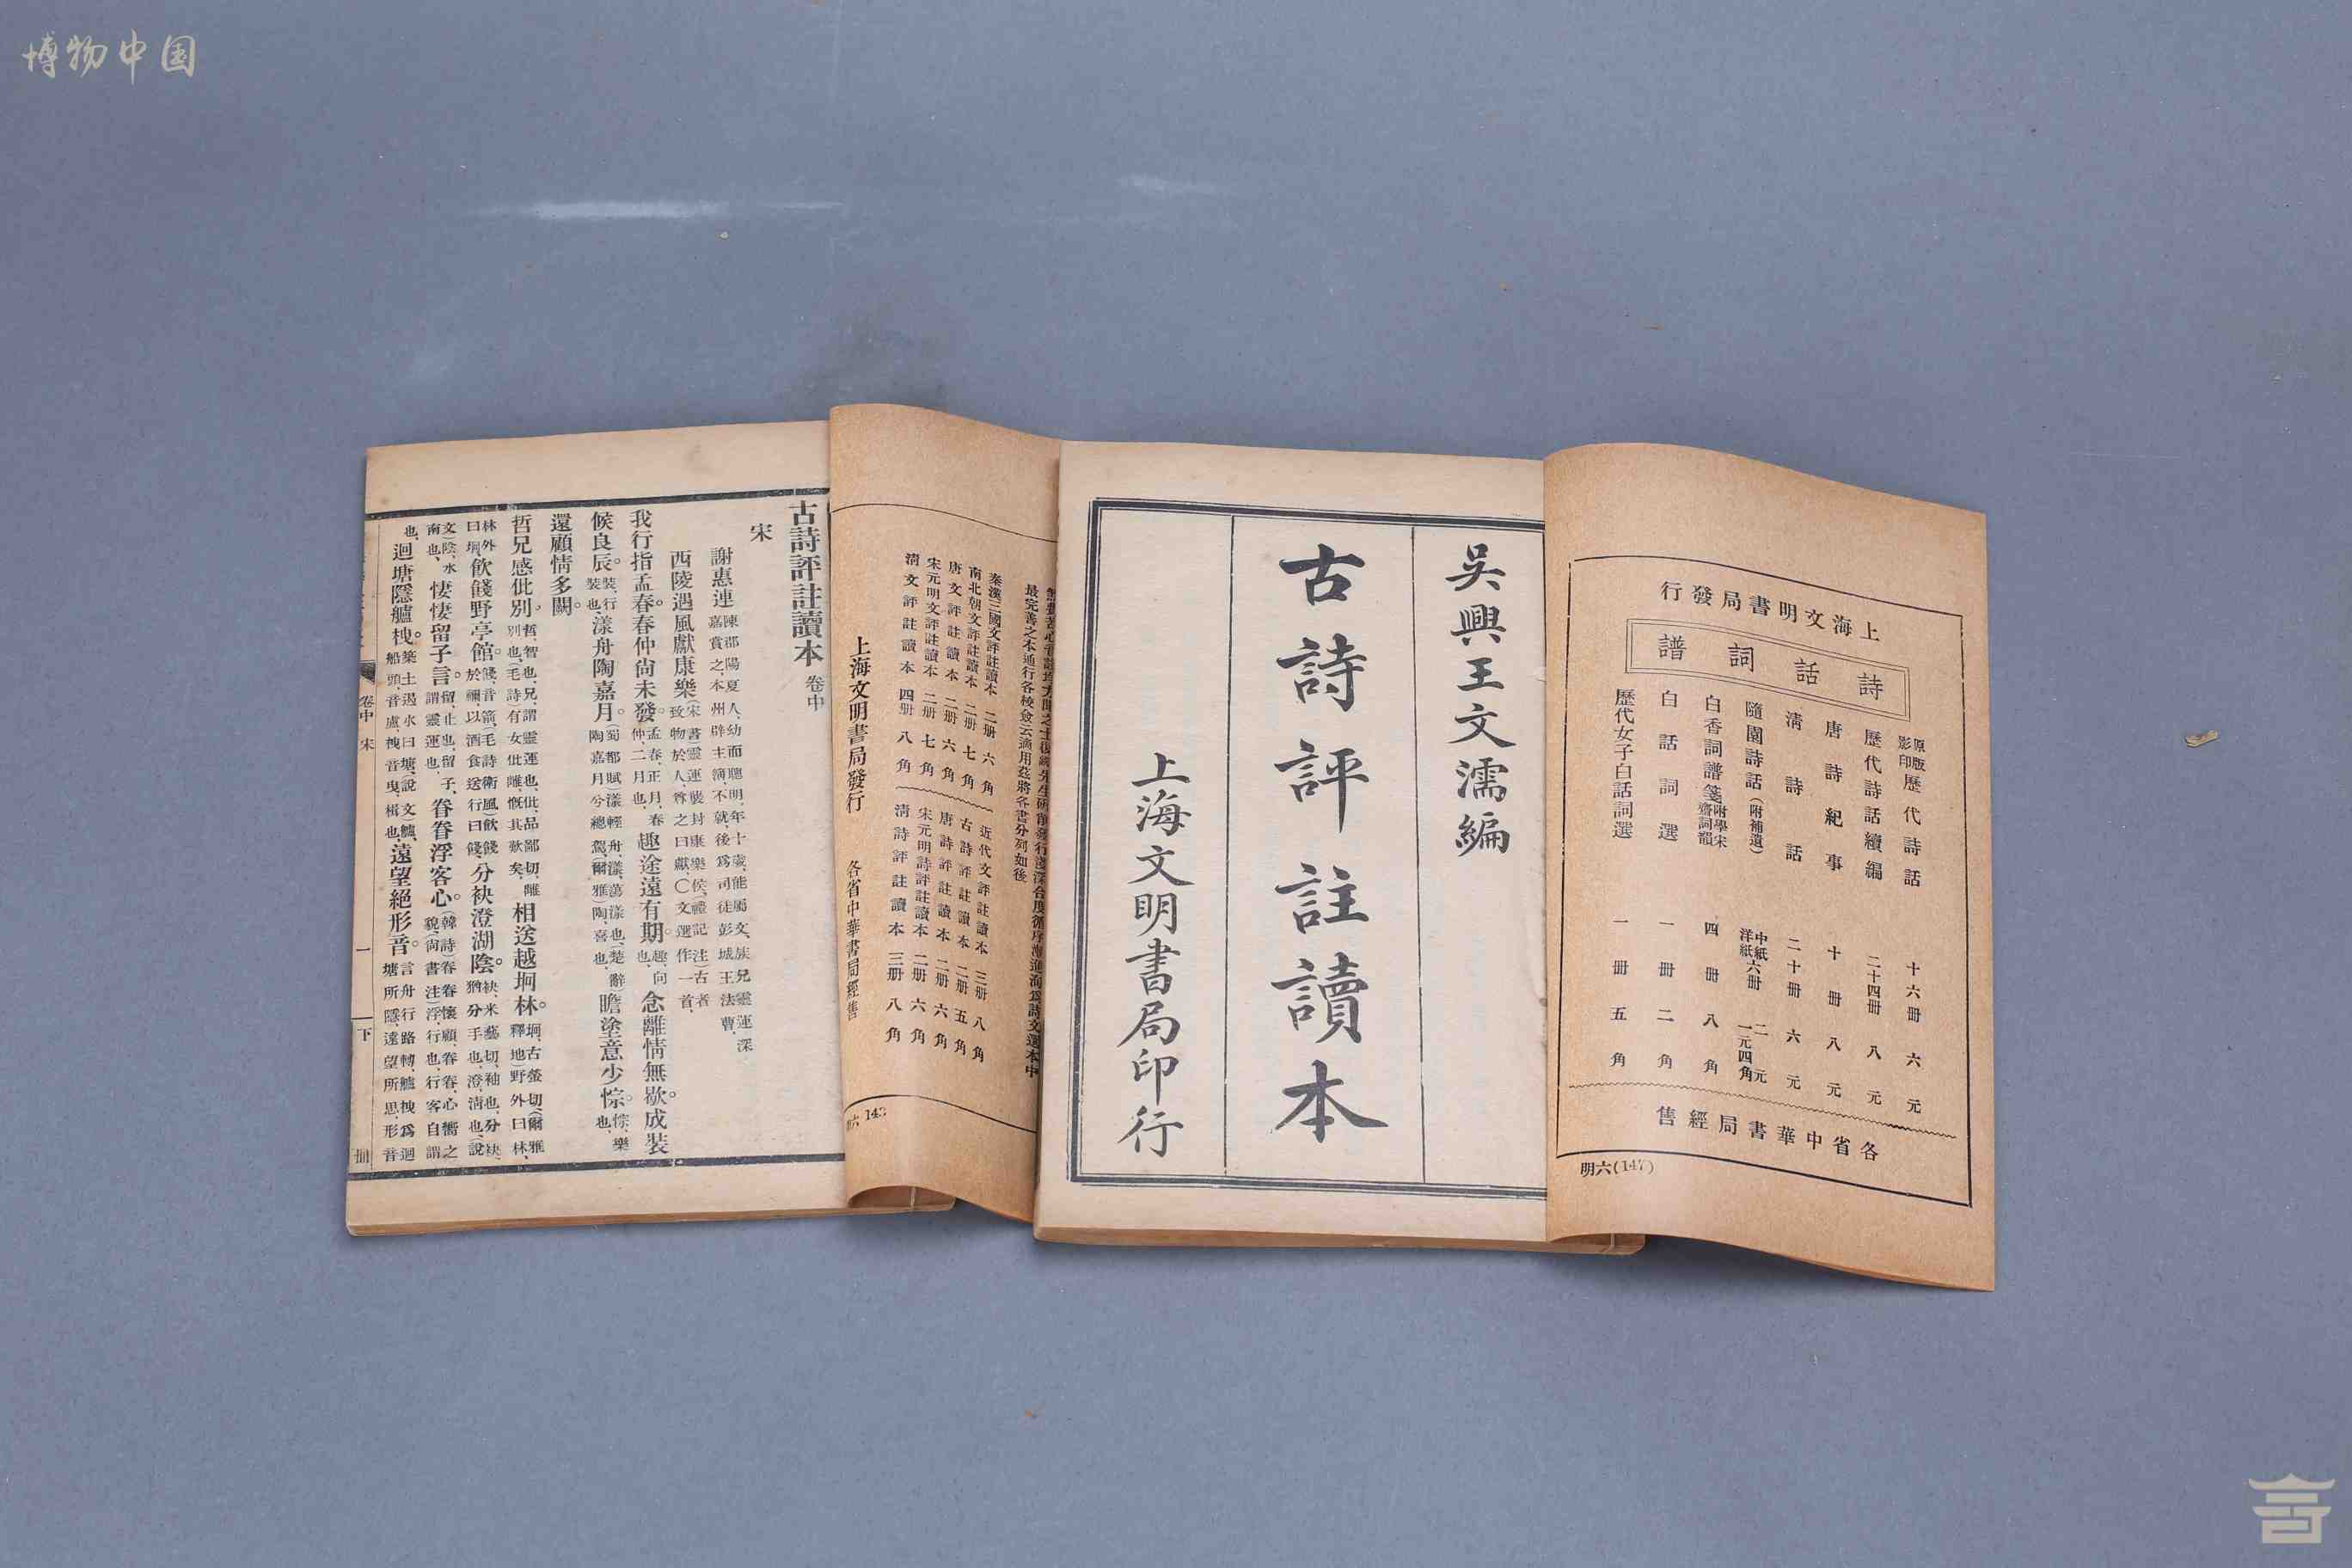 博物中国
上海文明書局發行
詩話詞譜
原版影印歷代詩話 十六冊 六元
歷代詩話續編 二十四冊 八元
唐詩紀事 十冊 八元
清詩話 二十冊 六元
隨園詩話(附補遺) 中紙六冊 二元 洋紙 一元四角
白香詞譜箋附學宋齋詞韻 四冊 八角
白話詞選 一冊 二角
歷代女子白話詞選 一冊 五角
各省中華書局經售
明六(147)
吳興王文濡編
古詩評註讀本
上海文明書局印行
秦漢三國文評註讀本 二冊 六角
南北朝文評註讀本 二冊 七角
唐文評註讀本 二冊 六角
宋元明文評註讀本 二冊 七角
清文評註讀本 四冊 八角
近代文評註讀本 三冊 八角
古詩評註讀本 二冊 五角
唐詩評註讀本 二冊 六角
宋元明詩評註讀本 二冊 六角
清詩評註讀本 三冊 八角
上海文明書局發行 各省中華書局經售
古詩評註讀本 卷中
宋
謝惠連 陳郡陽夏人、幼而聰明、年十歲、能屬文、族兄靈運深嘉賞之、本州辟主簿、不就、後爲司徒彭城王法曹、
西陵遇風獻康樂
我行指孟春。春仲尚未發。孟春、正月、春仲、二月也、趣途遠有期。趣、向也、念離情無歇。成裝
候良辰。裝、行裝也、漾舟陶嘉月。瞻塗意少悰。悰、樂也、
還顧情多闕。
哲兄感仳別。相送越坰林。
飲餞野亭館。分袂澄湖陰。
悽悽留子言。眷眷浮客心。
迴塘隱艫栧。遠望絕形音。
卷中 宋 一 下冊